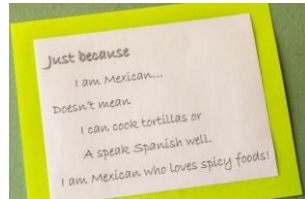 Just because
I am Mexican...
Doesn't mean
I can cook tortillas or
A speak Spanish well.
I am Mexican who loves spicy foods!